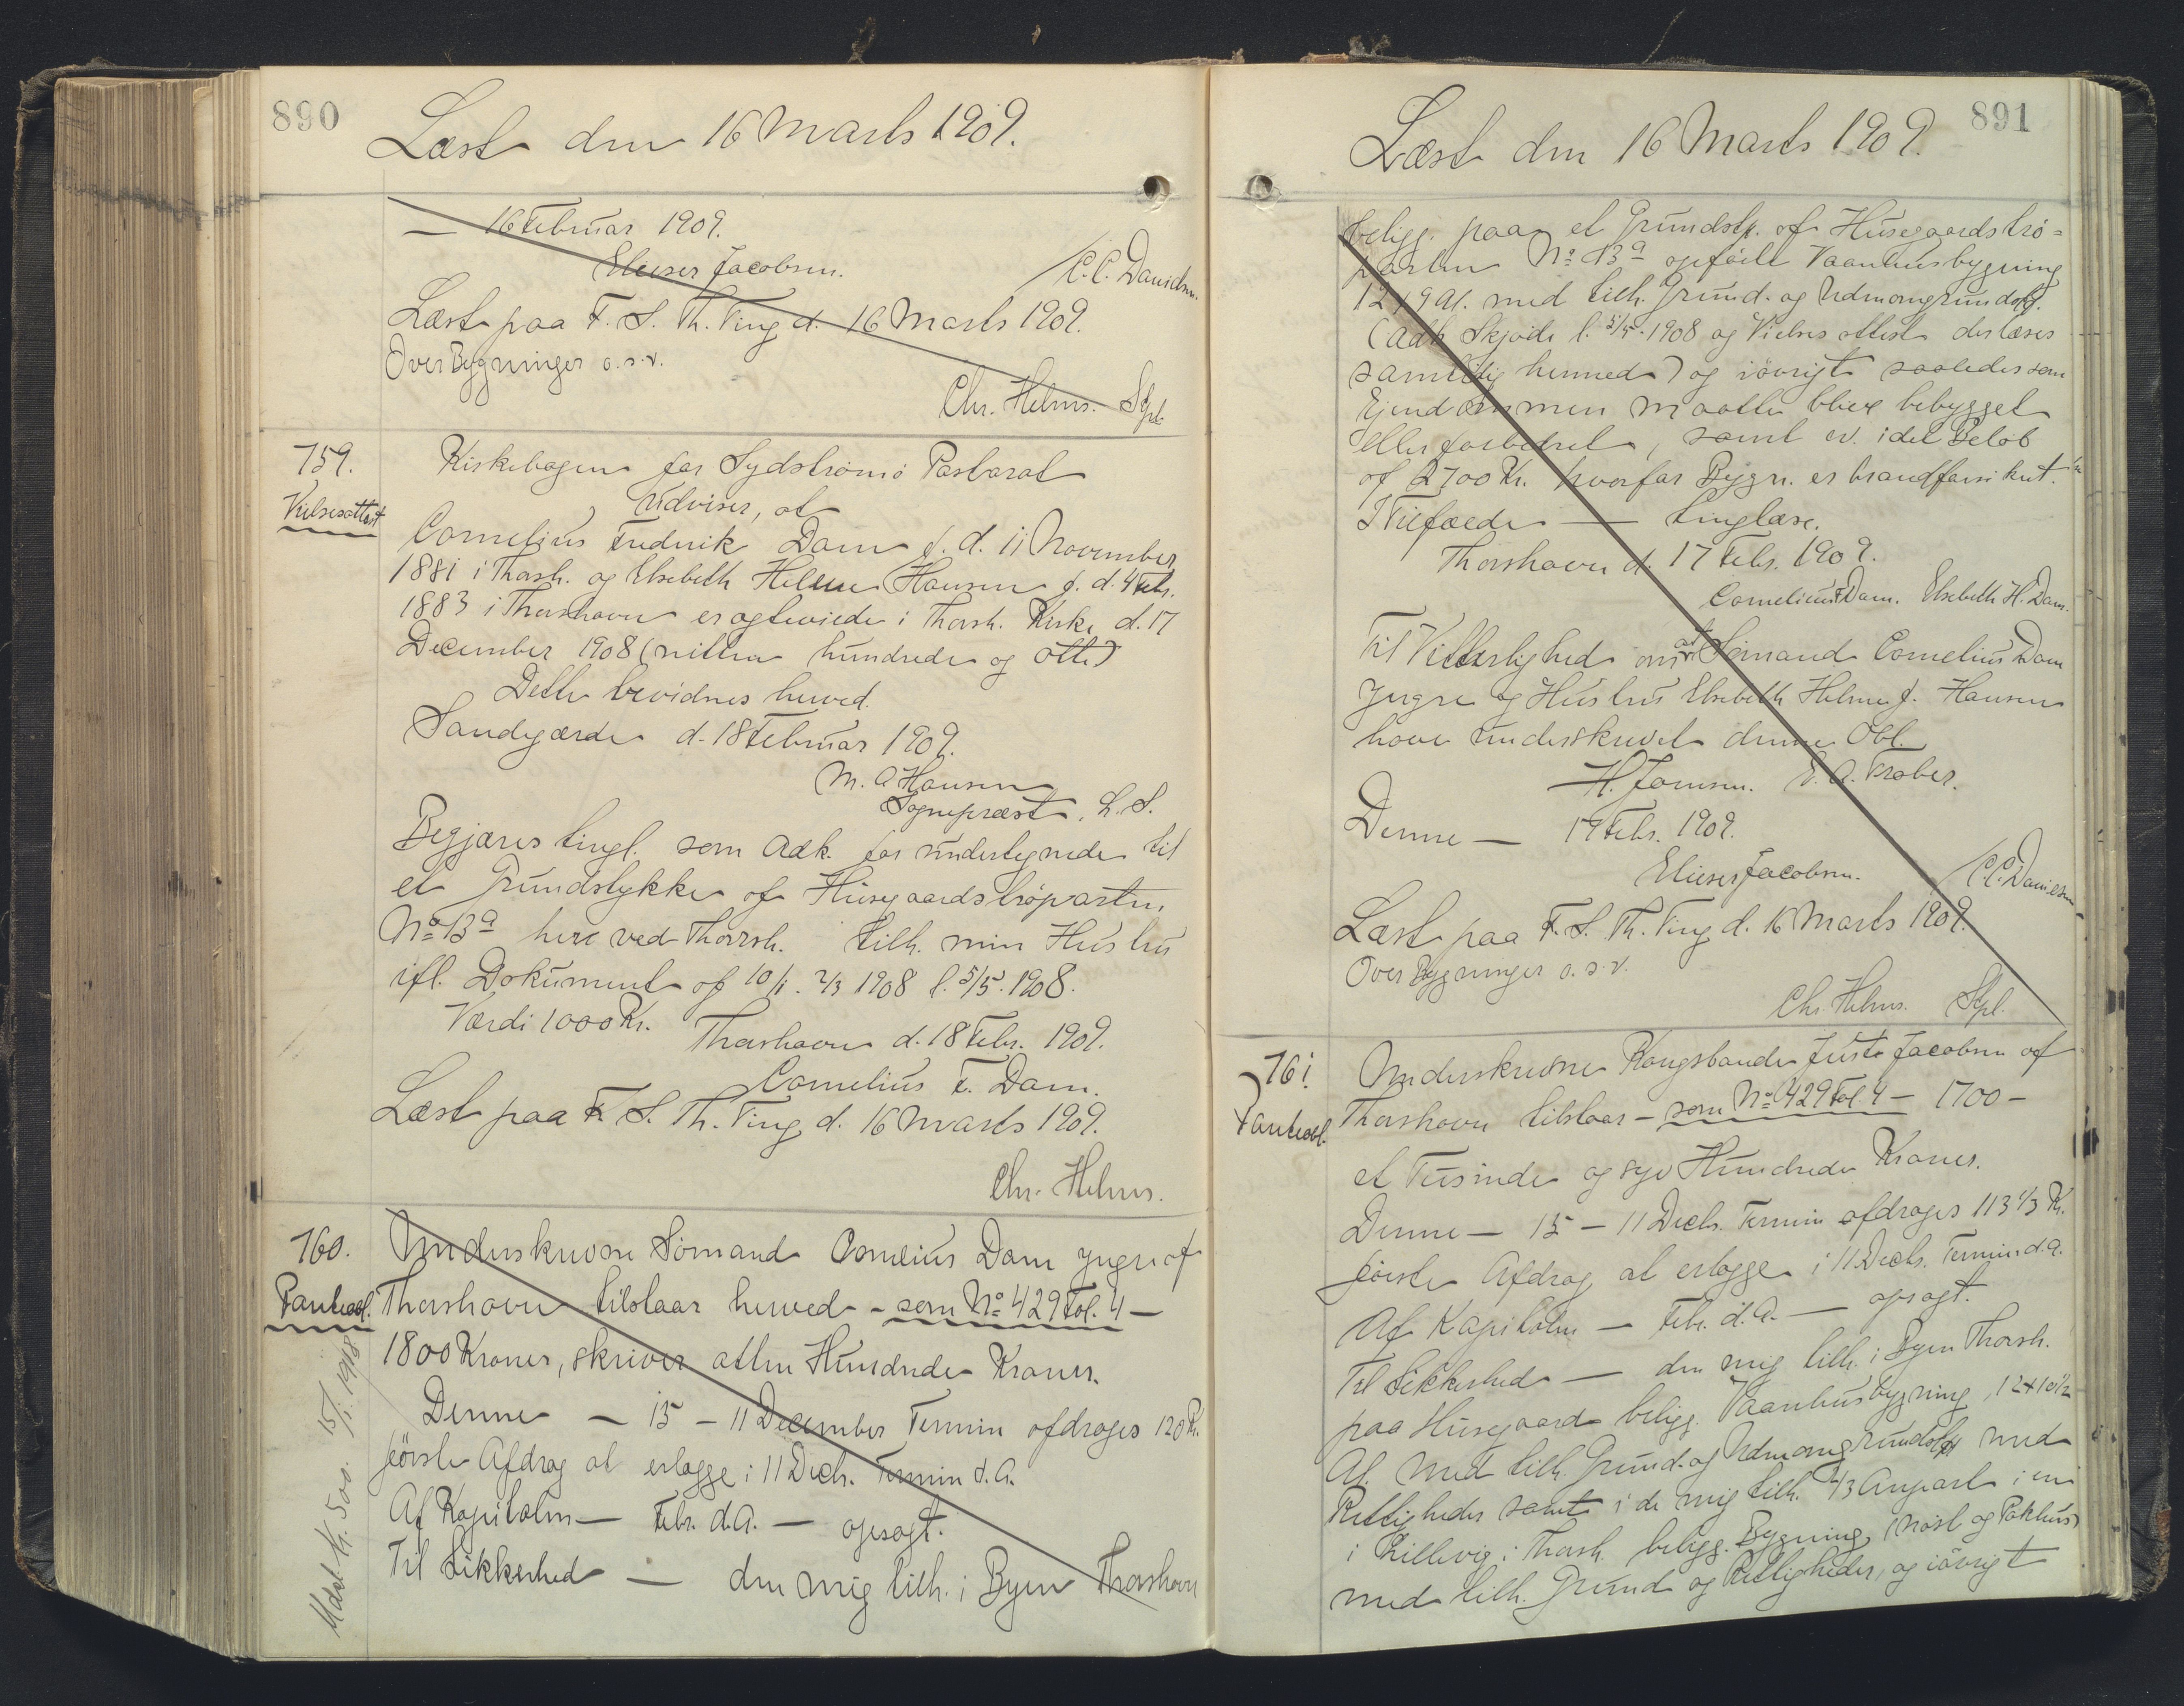 890
Læst den 16 Marts 1909.
— 16 Februar 1909.
Elieser Jacobsen.
/C.C. Danielsen.
Læst paa F. S. Th. Ting d. 16 Marts 1909.
Over Bygninger o.s.v.
Chr. Helms. Sgpl.
759.
Vielsesattest
Kirkebogen for Sydstrømø Pastorat
udviser, at
Cornelius Fredrik Dam f. d. 11 November
1881 i Thorsh. og Elsebeth Helene Hansen f. d. 4 Febr.
1883 i Thorshavn er ægteviede i Thorsh. Kirke d. 17
December 1908 (nitten hundrede og otte)
Dette bevidnes herved.
Sandegærde d. 18 Februar 1909.
M. A Hansen
Sognepræst. L. S.
Begjæres tingl. som Adk. for undertegnede til
et Grundstykke af Husegaardstrøparten
No 13a here ved Thorsh. tilh. min Hustru
ifl. Dokument af 10/1. 2/3 1908 l. 5/5. 1908.
Værdi 1000 Kr.
Thorshavn d. 18 Febr. 1909.
Cornelius F. Dam.
Læst paa F. S. Th. Ting d. 16 Marts 1909.
Chr. Helms.
760.
Panteobl.
Underskrevne Sømand Cornelius Dam yngre af
Thorshavn tilstaar herved - som No 429 Fol. 4 —
1800 Kroner, skriver atten Hundrede Kroner.
Denne — 15 — 11 December Termin afdrages 120 Kr.
første Afdrag at erlægge i 11 Decb. Termin d.A.
Af Kapitalen — Febr. d.A. — opsagt.
Til Sikkerhed — den mig tilh. i Byen Thorshavn
Udsl. Kr. 500. 15/1. 1918
891
Læst den 16 Marts 1909.
beligg. paa et Grundstk. af Husegaardstrø=
parten No 13a opførte Vaanhusbygning
12 x 9 Al. med tilh. Grund- og Udmomgrundstk.
(Adk Skjøde l. 5/5. 1908 og Vielsesattest der læses
samtidig hermed) og iøvrigt saaledes som
Ejendommen maatte blive bebygget
eller forbedret, samt ev. i det Beløb
af 2700 Kr. hvorfor Bygn. er brandforsikret.
I Tilfælde — tinglæse.
Thorshavn d. 17 Febr. 1909.
Cornelius F Dam. Elsebeth H. Dam.
Til Vitterlighed om at Sømand Cornelius Dam
yngre og Hustru Elsebeth Helene f. Hansen
have underskrevet denne Obl.
H. Joensen. E. A. Traber.
Denne — 17 Febr. 1909.
Elieser Jacobsen.
/C.C. Danielsen
Læst paa F. S. Th. Ting d. 16 Marts 1909.
Over Bygninger o.s.v.
Chr. Helms. Sgpl.
761.
Panteobl.
Underskrevne Kongsbonde Juste Jacobsen af
Thorshavn tilstaar - som No 429 Fol. 4 - 1700 -
et Tusinde og syv Hundrede Kroner.
Denne — 15 — 11 Decb. Termin afdrages 113 1/3 Kr.
første Afdrag at erlægge i 11 Decb. Termin d.A.
Af Kapitalen — Febr. d.A. — opsagt.
Til Sikkerhed — den mig tilh. i Byen Thorsh.
paa Husegaard beligg. Vaanhusbygning, 12 x 10 1/2
Al. med tilh. Grund- og Udmomgrundstk med
Rettigheder samt i de mig tilh. 2/3 Anpart i en
i Lillevig i Thorsh. beligg. Bygning (Nøst og Pakhus)
med tilh. Grund og Rettigheder, og iøvrigt